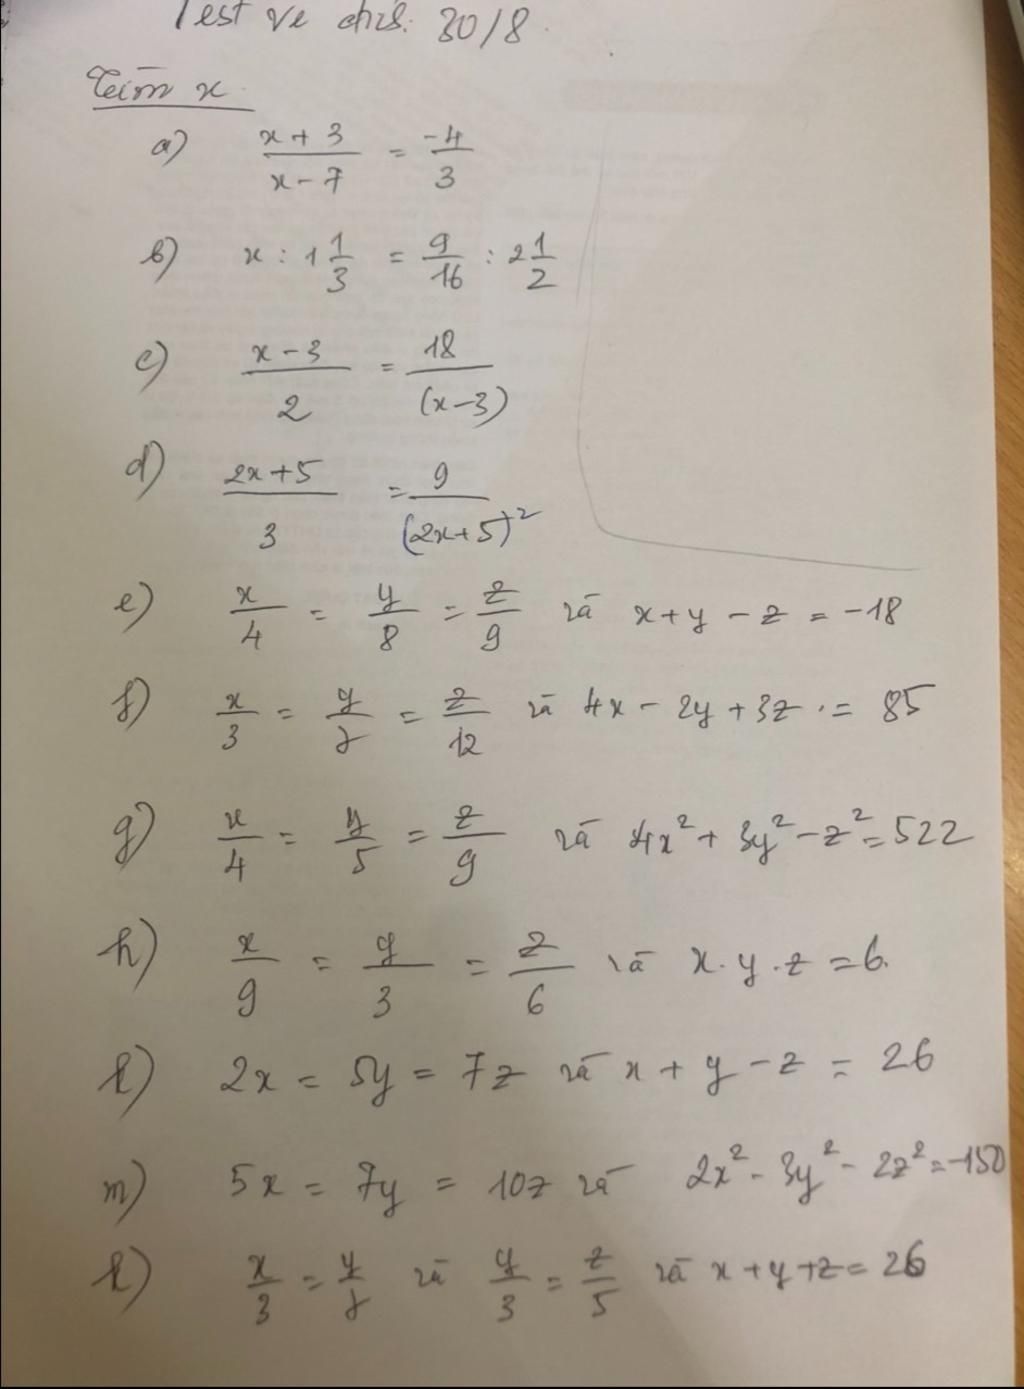 Test về nhà. 30/8.
Tìm x
a) \frac{x+3}{x-7} = \frac{-4}{3}
b) x : 1\frac{1}{3} = \frac{9}{16} : 2\frac{1}{2}
c) \frac{x-3}{2} = \frac{18}{(x-3)}
d) \frac{2x+5}{3} = \frac{9}{(2x+5)^2}
e) \frac{x}{4} = \frac{y}{8} = \frac{z}{9} và x+y-z = -18
f) \frac{x}{3} = \frac{y}{7} = \frac{z}{12} và 4x - 2y + 3z = 85
g) \frac{x}{4} = \frac{y}{5} = \frac{z}{9} và 4x^2 + 3y^2 - z^2 = 522
h) \frac{x}{9} = \frac{y}{3} = \frac{z}{6} và x.y.z = 6.
l) 2x = 5y = 7z và x + y - z = 26
m) 5x = 7y = 10z và 2x^2 - 3y^2 - 2z^2 = -150
k) \frac{x}{3} = \frac{y}{7} và \frac{y}{3} = \frac{z}{5} và x+y+z = 26